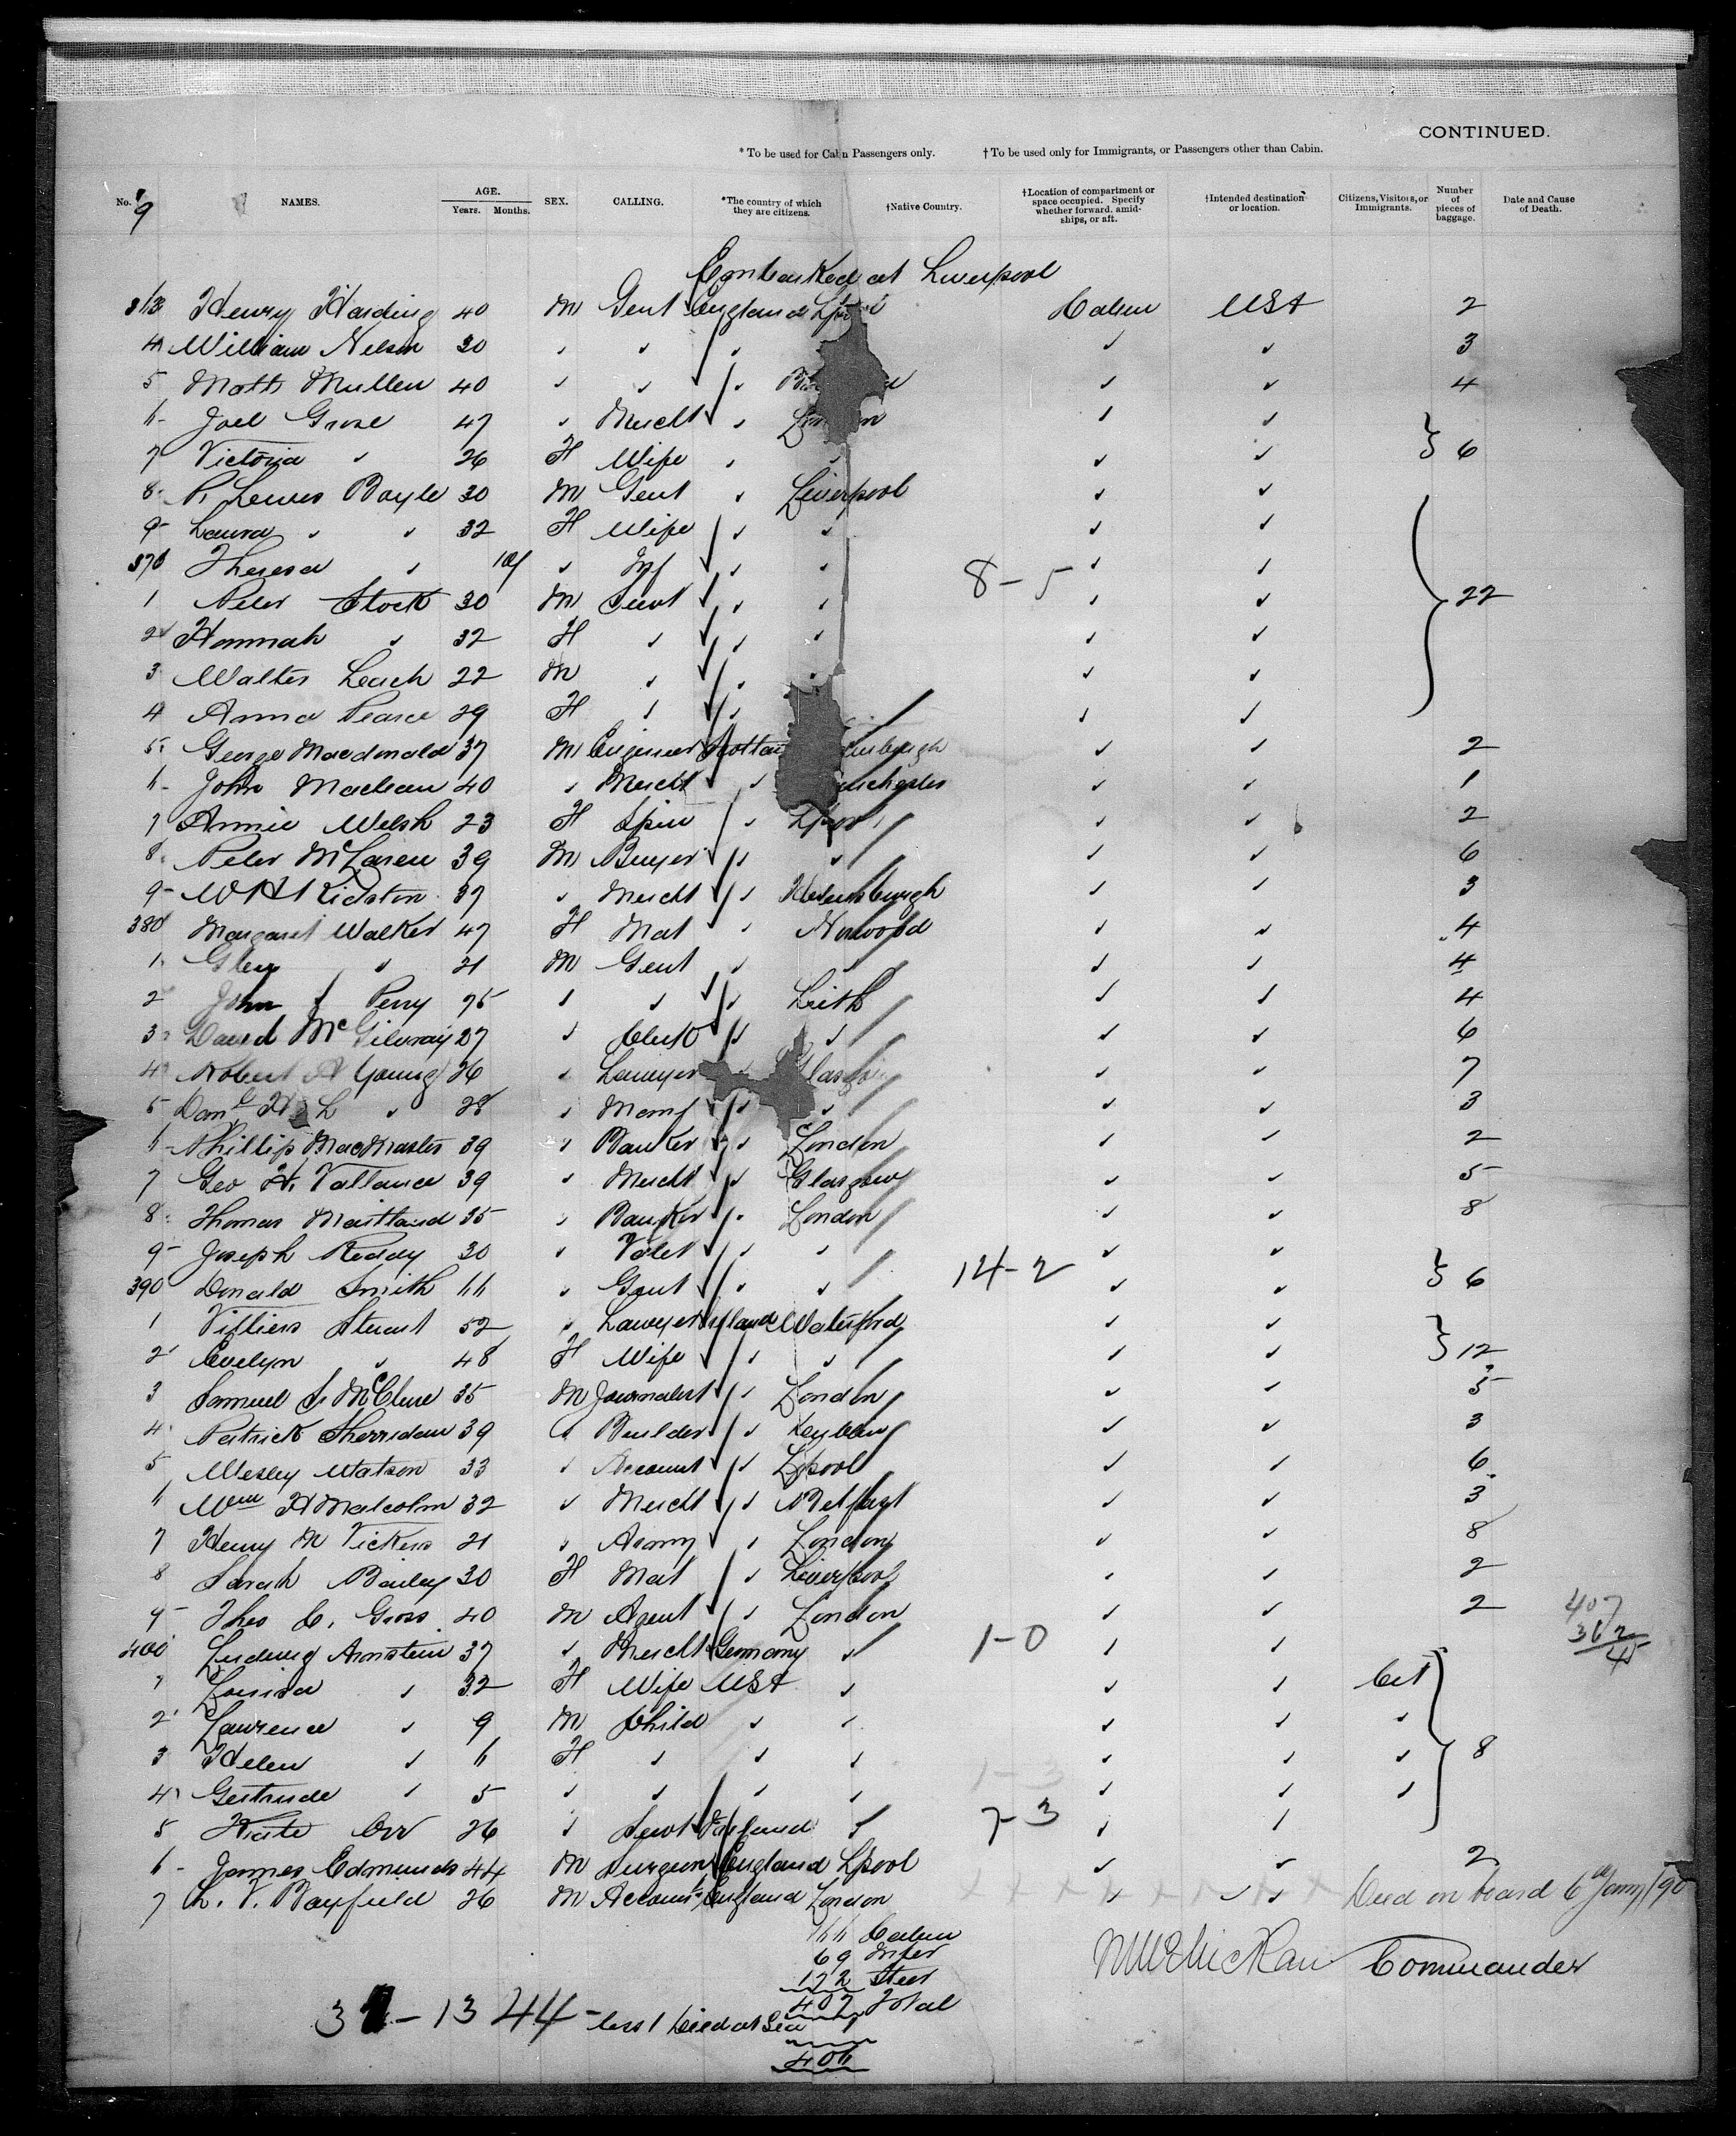 CONTINUED.
* To be used for Cabin Passengers only. † To be used only for Immigrants, or Passengers other than Cabin.
No. NAMES. AGE. Years. Months. SEX. CALLING. *The country of which they are citizens. †Native Country. †Location of compartment or space occupied. Specify whether forward, amidships, or aft. †Intended destination or location. Citizens, Visitors, or Immigrants. Number of pieces of baggage. Date and Cause of Death.
9
Embarked at Liverpool
Henry Harding 40 M Gent England Cabin USA 2
4 William Nelson 30 " " " " " 3
5 Matt Mullen 40 " " " " " 4
6 Joel Grose 47 " Mercht " London " " } 6
7 Victoria " 26 F Wife " " " "
8 P. Lewes Boyle 30 M Gent " Liverpool " "
9 Laura " " 32 F Wife " " " "
370 Theresa " " Inf " " 8-5 " "
1 Peter Stock 30 M Servt " " " " } 22
2 Hannah " 32 F " " " " "
3 Walter Leach 22 M " " " " "
4 Anna Pearce 29 F " " " "
5 George Macdonald 37 M Engineer " " 2
6 John Maclean 40 " Mercht " " " 1
7 Annie Welsh 23 F Spin " Lpool " " 2
8 Peter McLaren 39 M Buyer " " " " 6
9 W H Kidston 37 " Mercht " Helensburgh " " 3
380 Margaret Walker 47 F Mat " Norwood " " 4
1 Glen " 21 M Gent " " " " 4
2 John J Perry 75 " " " Leith " " 4
3 David McGilvray 27 " Clerk " " " " 6
4 Robert A Young 26 " Lawyer Glasgow " " 7
5 " 28 " Manf " " " " 3
6 Phillip MacMaster 39 " Banker " London " " 2
7 Geo H. Vallance 39 " Mercht " Glasgow " " 5
8 Thomas Maitland 35 " Banker " London " " 8
9 Joseph Reddy 30 " Valet " " " " } 6
390 Donald Smith 66 " Gent " " 14-2 " "
1 Villiers Stuart 52 " Lawyer Ireland Waterford " " } 12
2 Evelyn " 48 F Wife " " " "
3 Samuel S. McClure 35 M Journalist " London " " 5
4 Patrick Sherridan 39 " Builder " " " 3
5 Wesley Watson 33 " Account " Lpool " " 6
6 Wm H Malcolm 32 " Mercht " Belfast " " 3
7 Henry M Vickers 21 " Army " London " " 8
8 Sarah Bailey 30 F Mat " Liverpool " " 2
9 Thos C. Gross 40 M Agent " London " " 2
407
362
45
400 Ludwig Arnstein 37 " Mercht Germany " 1-0 " "
1 Louisa " 32 F Wife USA " " " Cit
2 Lawrence " 9 M Child " " " " "
3 Helen " 6 F " " " " " " } 8
4 Gertrude " 5 " " " " 1-3 " " "
5 Kate Orr 26 " Servt " 7-3 " "
6 James Edmunds 44 M Surgeon England Lpool " " 2
7 L. V. Bayfield 26 M Account England London " " " Died on board 6 Jany/90
166 Cabin
69 Inter
172 Steer
407 Total
Commander
13 44 less 1 Died at Sea
406